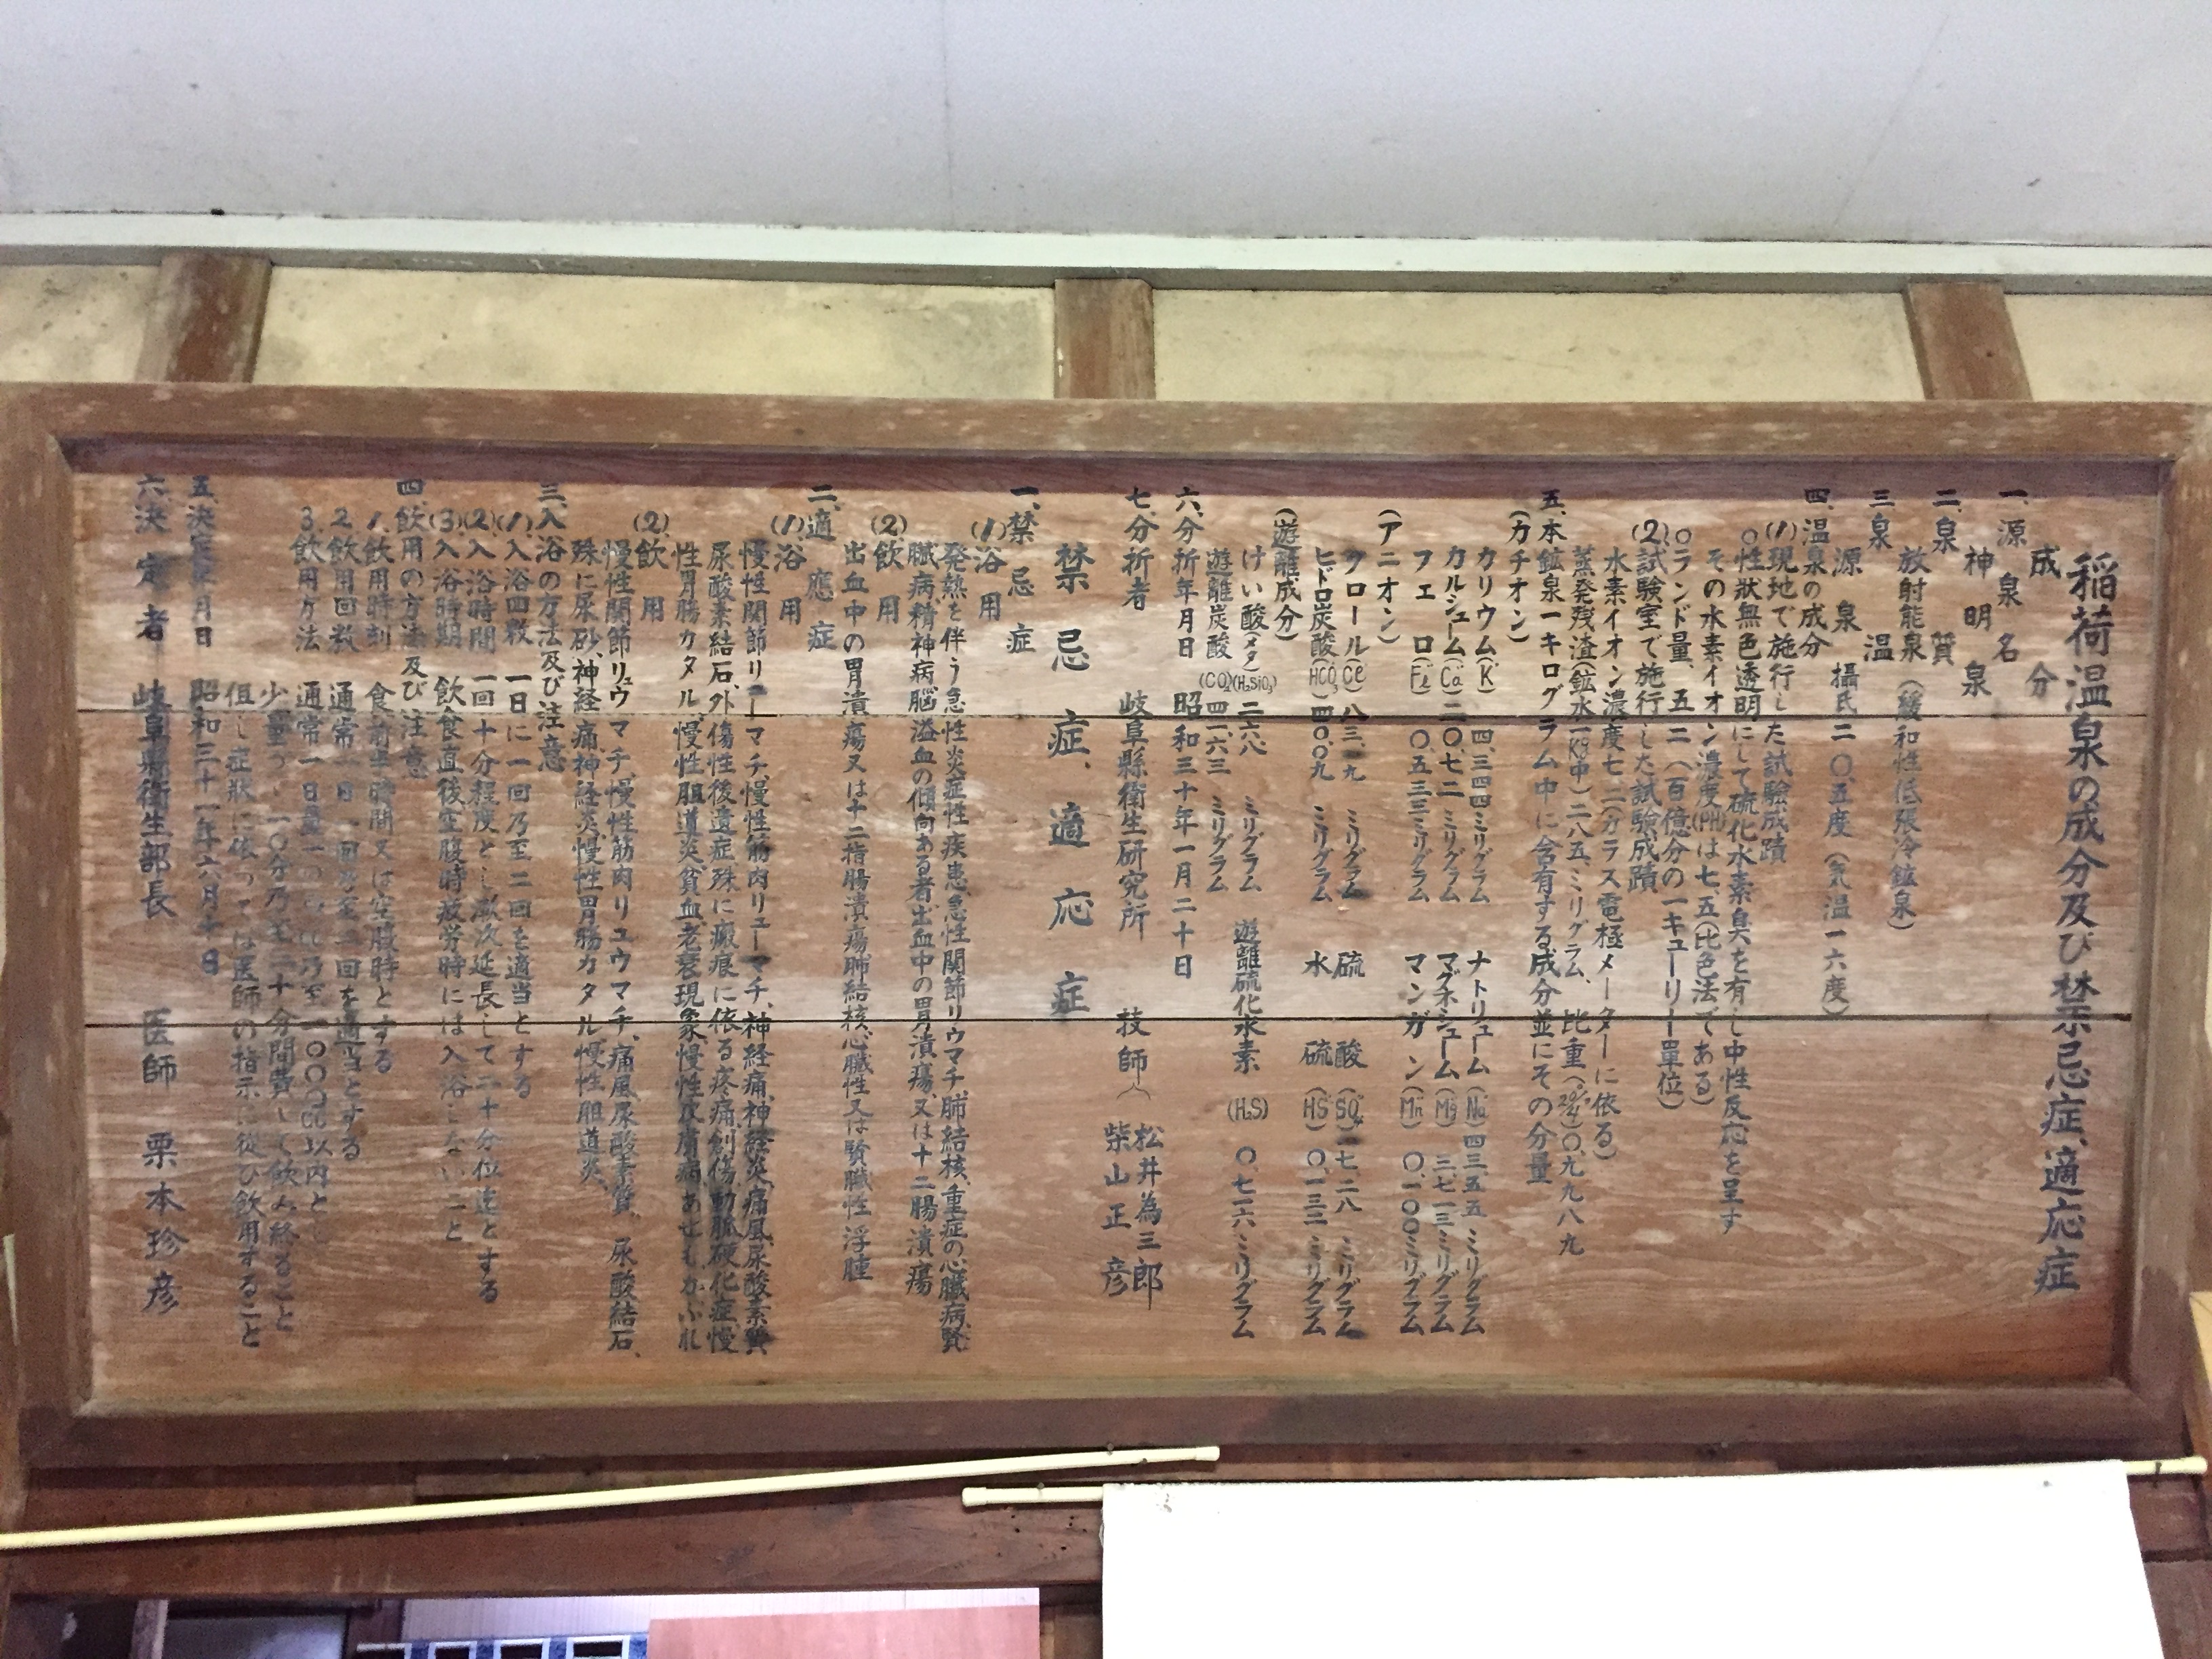 稲荷温泉の成分及び禁忌症、適応症
成分
一、源泉名
神明泉
二、泉質
放射能泉(緩和性低張冷鉱泉)
三、泉温
源泉 攝氏二〇、五度(気温一六度)
四、温泉の成分
(1)現地で施行した試験成蹟
〇性狀無色透明にして硫化水素臭を有し中性反応を呈す
その水素イオン濃度(PH)は七、五(比色法である)
〇ランド量、五二(百億分の一キューリー單位)
(2)試験室で施行した試験成蹟
水素イオン濃度七、二(ガラス電極メーターに依る)
蒸発残渣(鉱水一Kg中)二八五、ミリグラム、比重(20/4)〇、九九八九
五、本鉱泉一キログラム中に含有する成分並にその分量
(カチオン)
カリウム(K˙)四、三四四ミリグラム ナトリューム(Na˙)四三、五五ミリグラム
カルシューム(Ca¨)二〇、七二ミリグラム マグネシューム(Mg¨)三、七一三ミリグラム
フェロ(Fe¨)〇、五三三ミリグラム マンガン(Mn¨)〇、一〇〇ミリグラム
(アニオン)
クロール(Cl')八三、九ミリグラム 硫酸(SO₄")二七、二八ミリグラム
ヒドロ炭酸(HCO₃')四〇、〇九ミリグラム 水硫(HS')〇、一三二ミリグラム
(遊離成分)
けい酸(メタ)(H₂SiO₃)二六、八ミリグラム 遊離硫化水素(H₂S)〇、七二六ミリグラム
遊離炭酸(CO₂)四一、六三ミリグラム
六、分折年月日 昭和三十年一月二十日
七、分折者 岐阜縣衛生研究所 技師 松井為三郎
柴山正彦
禁忌症、適応症
一、禁忌症
(1)浴用
発熱を伴う急性炎症性疾患、急性関節リウマチ、肺結核、重症の心臓病、賢
臓病、精神病、脳溢血の傾向ある者、出血中の胃潰瘍、又は十二腸潰瘍
(2)飲用
出血中の胃潰瘍又は十二指腸潰瘍、肺結核、心臓性又は賢臓性浮腫
二、適應症
(1)浴用
慢性関節リューマチ、慢性筋肉リューマチ、神経痛、神経炎、痛風、尿酸素質
尿酸素結石、外傷性後遺症、殊に瘢痕に依る疼痛、創傷、動脈硬化症、慢
性胃腸カタル、慢性胆道炎、貧血、老衰現象、慢性皮膚病、あせも、かぶれ
(2)飲用
慢性関節リュウマチ、慢性筋肉リュウマチ、痛風、尿酸素質、尿酸結石、
殊に尿砂、神経痛、神経炎、慢性胃腸カタル、慢性胆道炎、
三、入浴の方法及び注意
(1)入浴回数 一日に一回乃至二回を適当とする
(2)入浴時間 一回十分程度とし漸次延長して二十分位迄とする
(3)入浴時期 飲食直後空腹時疲労時には入浴しないこと
四、飲用の方法及び注意
1、飲用時刻 食前半時間又は空腹時とする
2、飲用回数 通常一日一回乃至二回を適当とする
3、飲用方法 通常一日量一〇〇乃至一〇〇〇CC以内とし
少量づゝ一〇分乃至二十分間費して飲み終ること
但し症狀に依っては医師の指示に從ひ飲用すること
五、決定年月日 昭和三十一年六月十日
六、決定者 岐阜縣衛生部長 医師 栗本珍彦